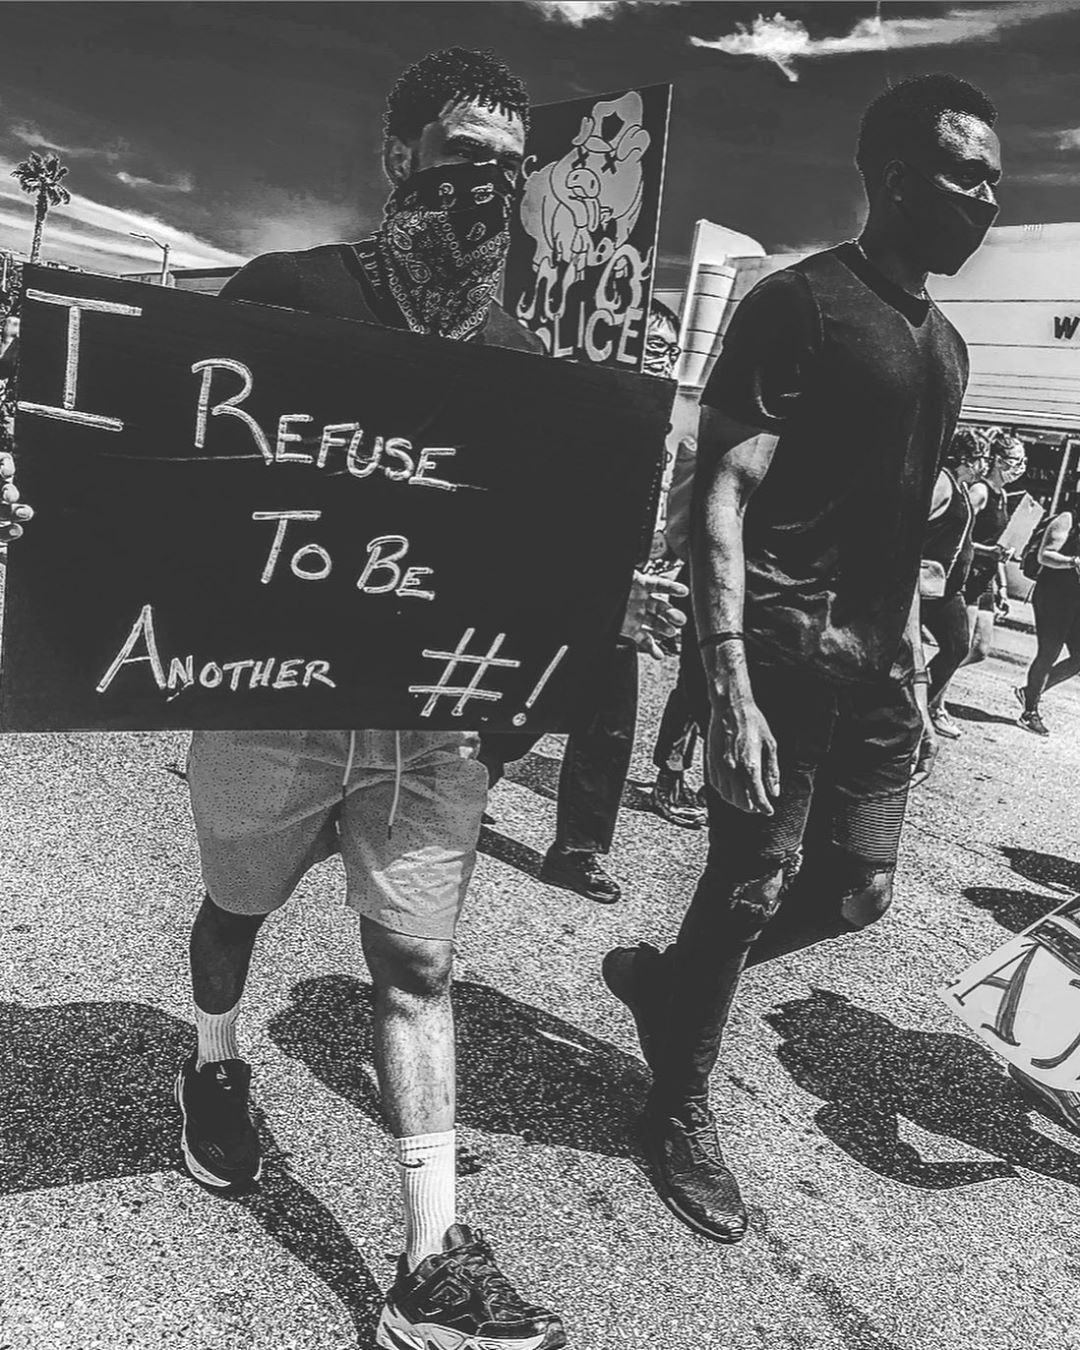 I REFUSE
TO BE
ANOTHER #!
POLICE
W
A